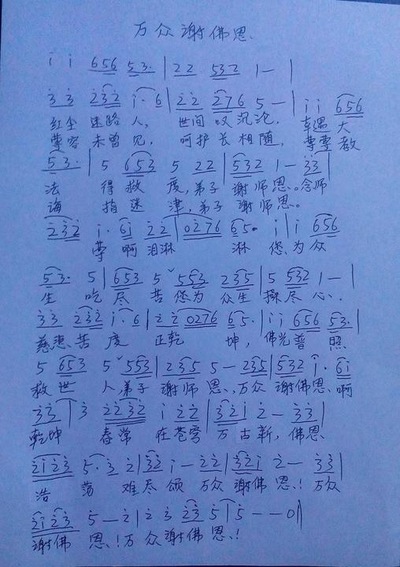 万众谢佛恩.
i i 656 53. | 22 532 1 — |
33 232 i·6 | 22 276 5 — | i i 656
红尘迷路人, 世间叹沉沦, 幸遇大
尊容未曾见, 呵护长相随, 尊尊教
53. | 5 653 5 22 | 532 1 — 33 |
法 得救度,弟子 谢师恩。念师
诲 指迷津,弟子 谢师恩。
232 i· 6i 22 | 0276 65. i | i 656
尊啊泪淋 淋 您为众
53. 5 | 653 5 553 235 | 5 532 1 — |
生 吃尽 苦您为 众生 操尽心、
33 232 i·6 | 22 0276 65. | i i 656 53. |
慈悲苦度 正乾 坤, 佛光普 照
5 653 5 553 | 235 5 — 235 | 532 i· 6i
救世 人弟子 谢师恩、万众 谢佛恩、啊
33 | 3 2232 i 22 | 32i 2 — 33 |
乾坤 春常 在苍穹 万古新, 佛恩
2i 23 5·3 2 | 32 i — 22 | 32i 2 — 33 |
浩 荡 难尽颂 万众 谢佛恩! 万众
2i 23 5 — 2 | 2 3 23 5 | 5 — — 0 ||
谢佛 恩!万众谢佛恩!